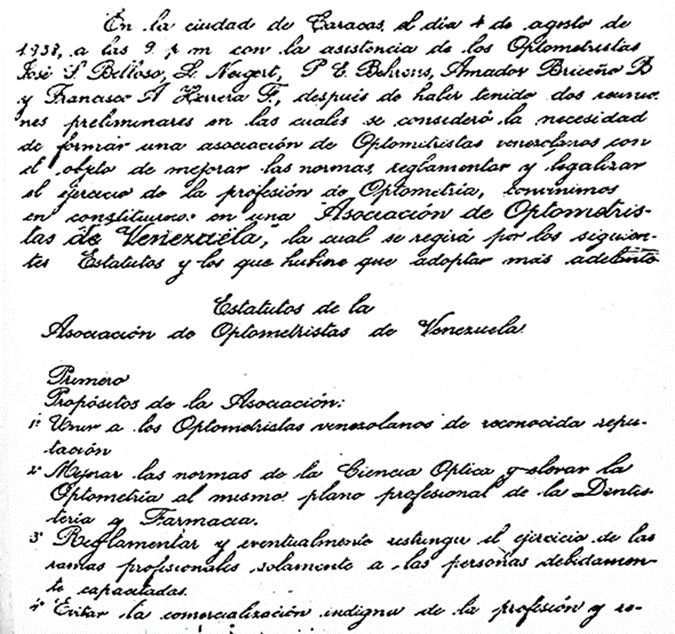 En la ciudad de Caracas, el día 4 de agosto de
1.938, a las 9 p m con la asistencia de los Optometristas
José S. Belloso, L. Neigert, P E. Behrens, Amador Briceño B
y Francisco A Herrera F., después de haber tenido dos reunio-
nes preliminares en las cuales se consideró la necesidad
de formar una asociación de Optometristas venezolanos con
el objeto de mejorar las normas, reglamentar y legalizar
el ejercicio de la profesión de Optometría, convinimos
en constituirnos en una "Asociación de Optometris-
tas de Venezuela", la cual se regirá por los siguien-
tes Estatutos y los que hubiere que adoptar más adelante
Estatutos de la
Asociación de Optometristas de Venezuela.
Primero
Propósitos de la Asociación:
1º Unir a los Optometristas venezolanos de reconocida repu-
tación
2º Mejorar las normas de la Ciencia Optica y elevar la
Optometría al mismo plano profesional de la Dentis-
tería y Farmacia.
3º Reglamentar y eventualmente restringir el ejercicio de las
ramas profesionales solamente a las personas debidamen-
te capacitadas.
4º Evitar la comercialización indigna de la profesión y re-